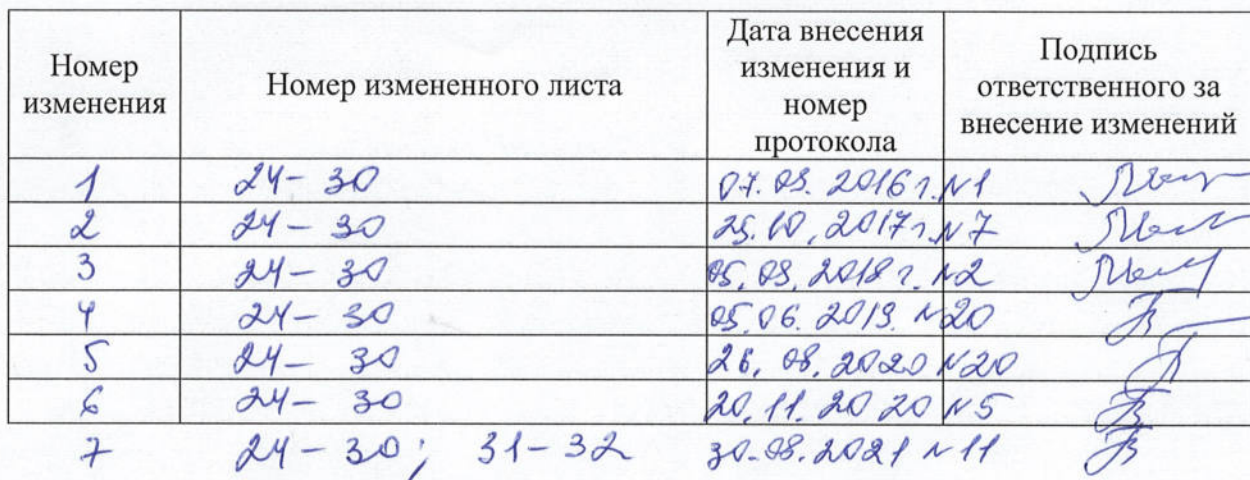 Номер изменения | Номер измененного листа | Дата внесения изменения и номер протокола | Подпись ответственного за внесение изменений
1 | 24 - 30 | 07.09.2016 г. №1
2 | 24 - 30 | 25.10.2017 г. №7
3 | 24 - 30 | 05.09.2018 г. №2
4 | 24 - 30 | 05.06.2019. №20
5 | 24 - 30 | 26.08.2020 №20
6 | 24 - 30 | 20.11.2020 №5
7 | 24 - 30; 31 - 32 | 30.08.2021 №11